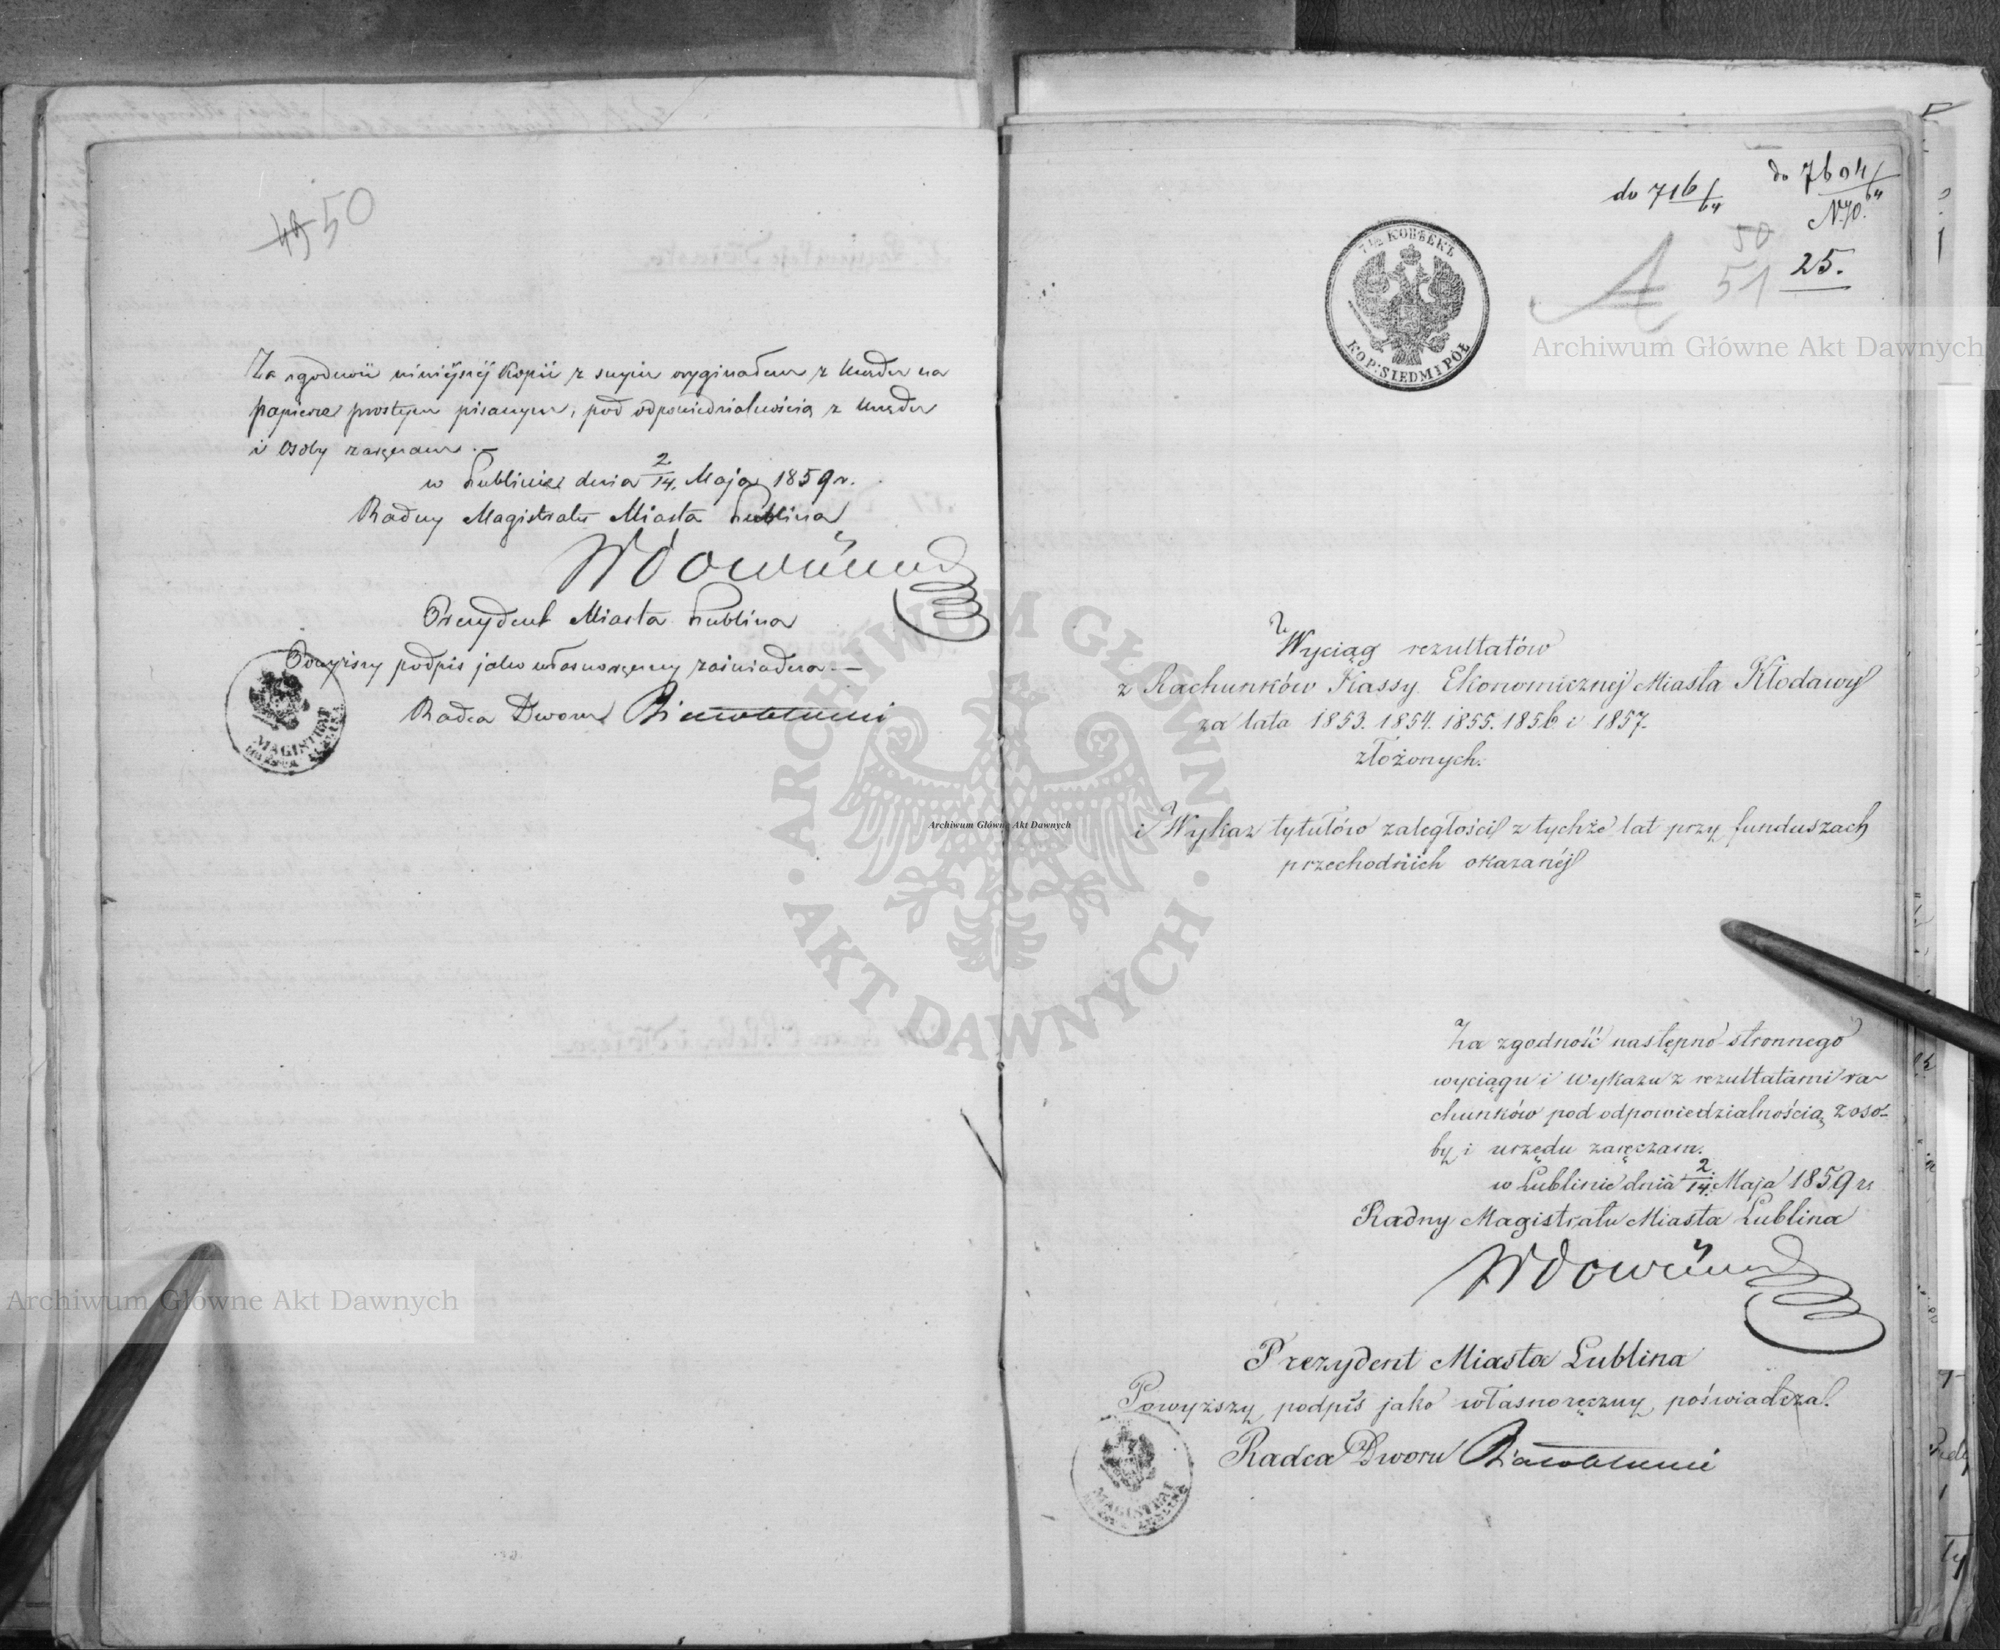 49 50
Za zgodność niniejszej Kopii z swym oryginałem z Urzędu na
papierze prostym pisanym, pod odpowiedzialnością z Urzędu
i Osoby zaręczam.—
w Lublinie dnia 2/14. Maja 1859 r.
Radny Magistratu Miasta Lublina
Prezydent Miasta Lublina
Powyższy podpis jako własnoręczny zaświadcza.—
Radca Dworu
MAGISTRAT
MIASTA LUBLINA
do 716/64
do 7604/64
N. 70.
50
51
25.
A
7 1/2 КОПѢЕКЪ
KOP: SIEDM I PÓŁ
Wyciąg rezultatów
z Rachunków Kassy Ekonomicznej Miasta Kłodawy
za lata 1853. 1854. 1855. 1856 i 1857.
złożonych.
i Wykaz tytułów zaległości z tychże lat przy funduszach
przechodnich okazanéj
Za zgodność następno-stronnego
wyciągu i Wykazu z rezultatami ra-
chunków pod odpowiedzialnością z oso-
by i urzędu zaręczam.
w Lublinie dnia 2/14. Maja 1859 r.
Radny Magistratu Miasta Lublina
Prezydent Miasta Lublina
Powyższy podpis jako własnoręczny, poświadcza.
Radca Dworu
MAGISTRAT
MIASTA LUBLINA
Archiwum Główne Akt Dawnych
Archiwum Główne Akt Dawnych
Archiwum Główne Akt Dawnych
ARCHIWUM GŁÓWNE AKT DAWNYCH